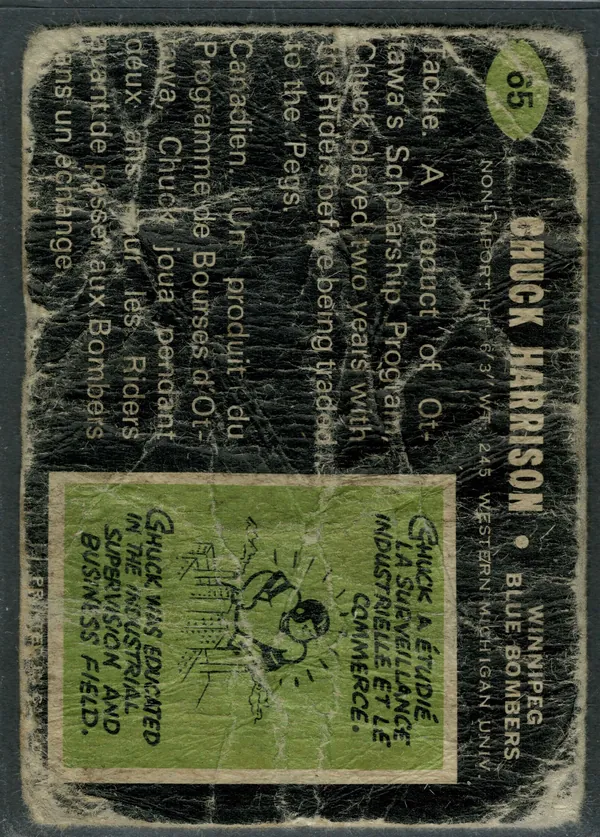 65
CHUCK HARRISON • WINNIPEG
BLUE BOMBERS
NON-IMPORT HT. 6'3" WT. 245 WESTERN MICHIGAN UNIV.
Tackle. A product of Ot-
tawa's Scholarship Program,
Chuck played two years with
the Riders before being traded
to the 'Pegs.
Canadien. Un produit du
Programme de Bourses d'Ot-
tawa, Chuck joua pendant
deux ans sur les Riders
avant de passer aux Bombers
dans un échange.
CHUCK A ÉTUDIÉ
LA SURVEILLANCE
INDUSTRIELLE ET LE
COMMERCE.
CHUCK WAS EDUCATED
IN THE INDUSTRIAL
SUPERVISION AND
BUSINESS FIELD.